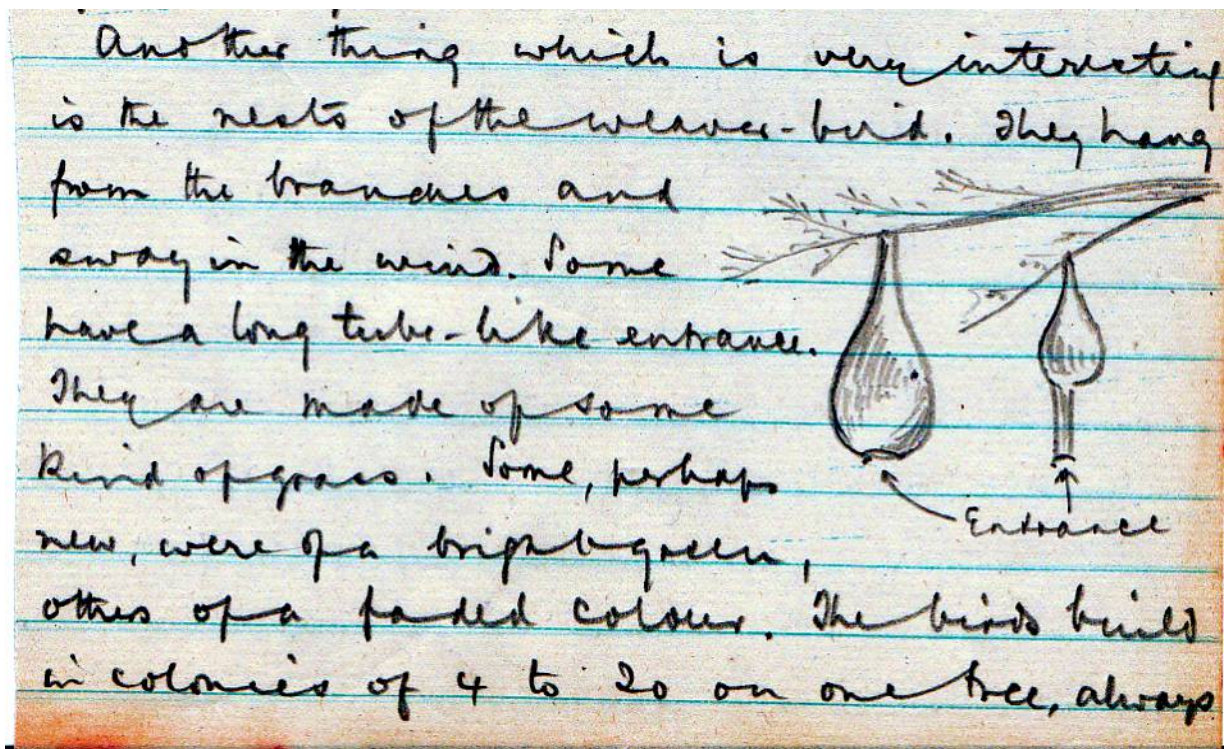 Another thing which is very interesting
is the nests of the weaver-bird. They hang
from the branches and
sway in the wind. Some
have a long tube-like entrance.
They are made of some
kind of grass. Some, perhaps
Entrance
new, were of a bright green,
others of a faded colour. The birds build
in colonies of 4 to 20 on one tree, always